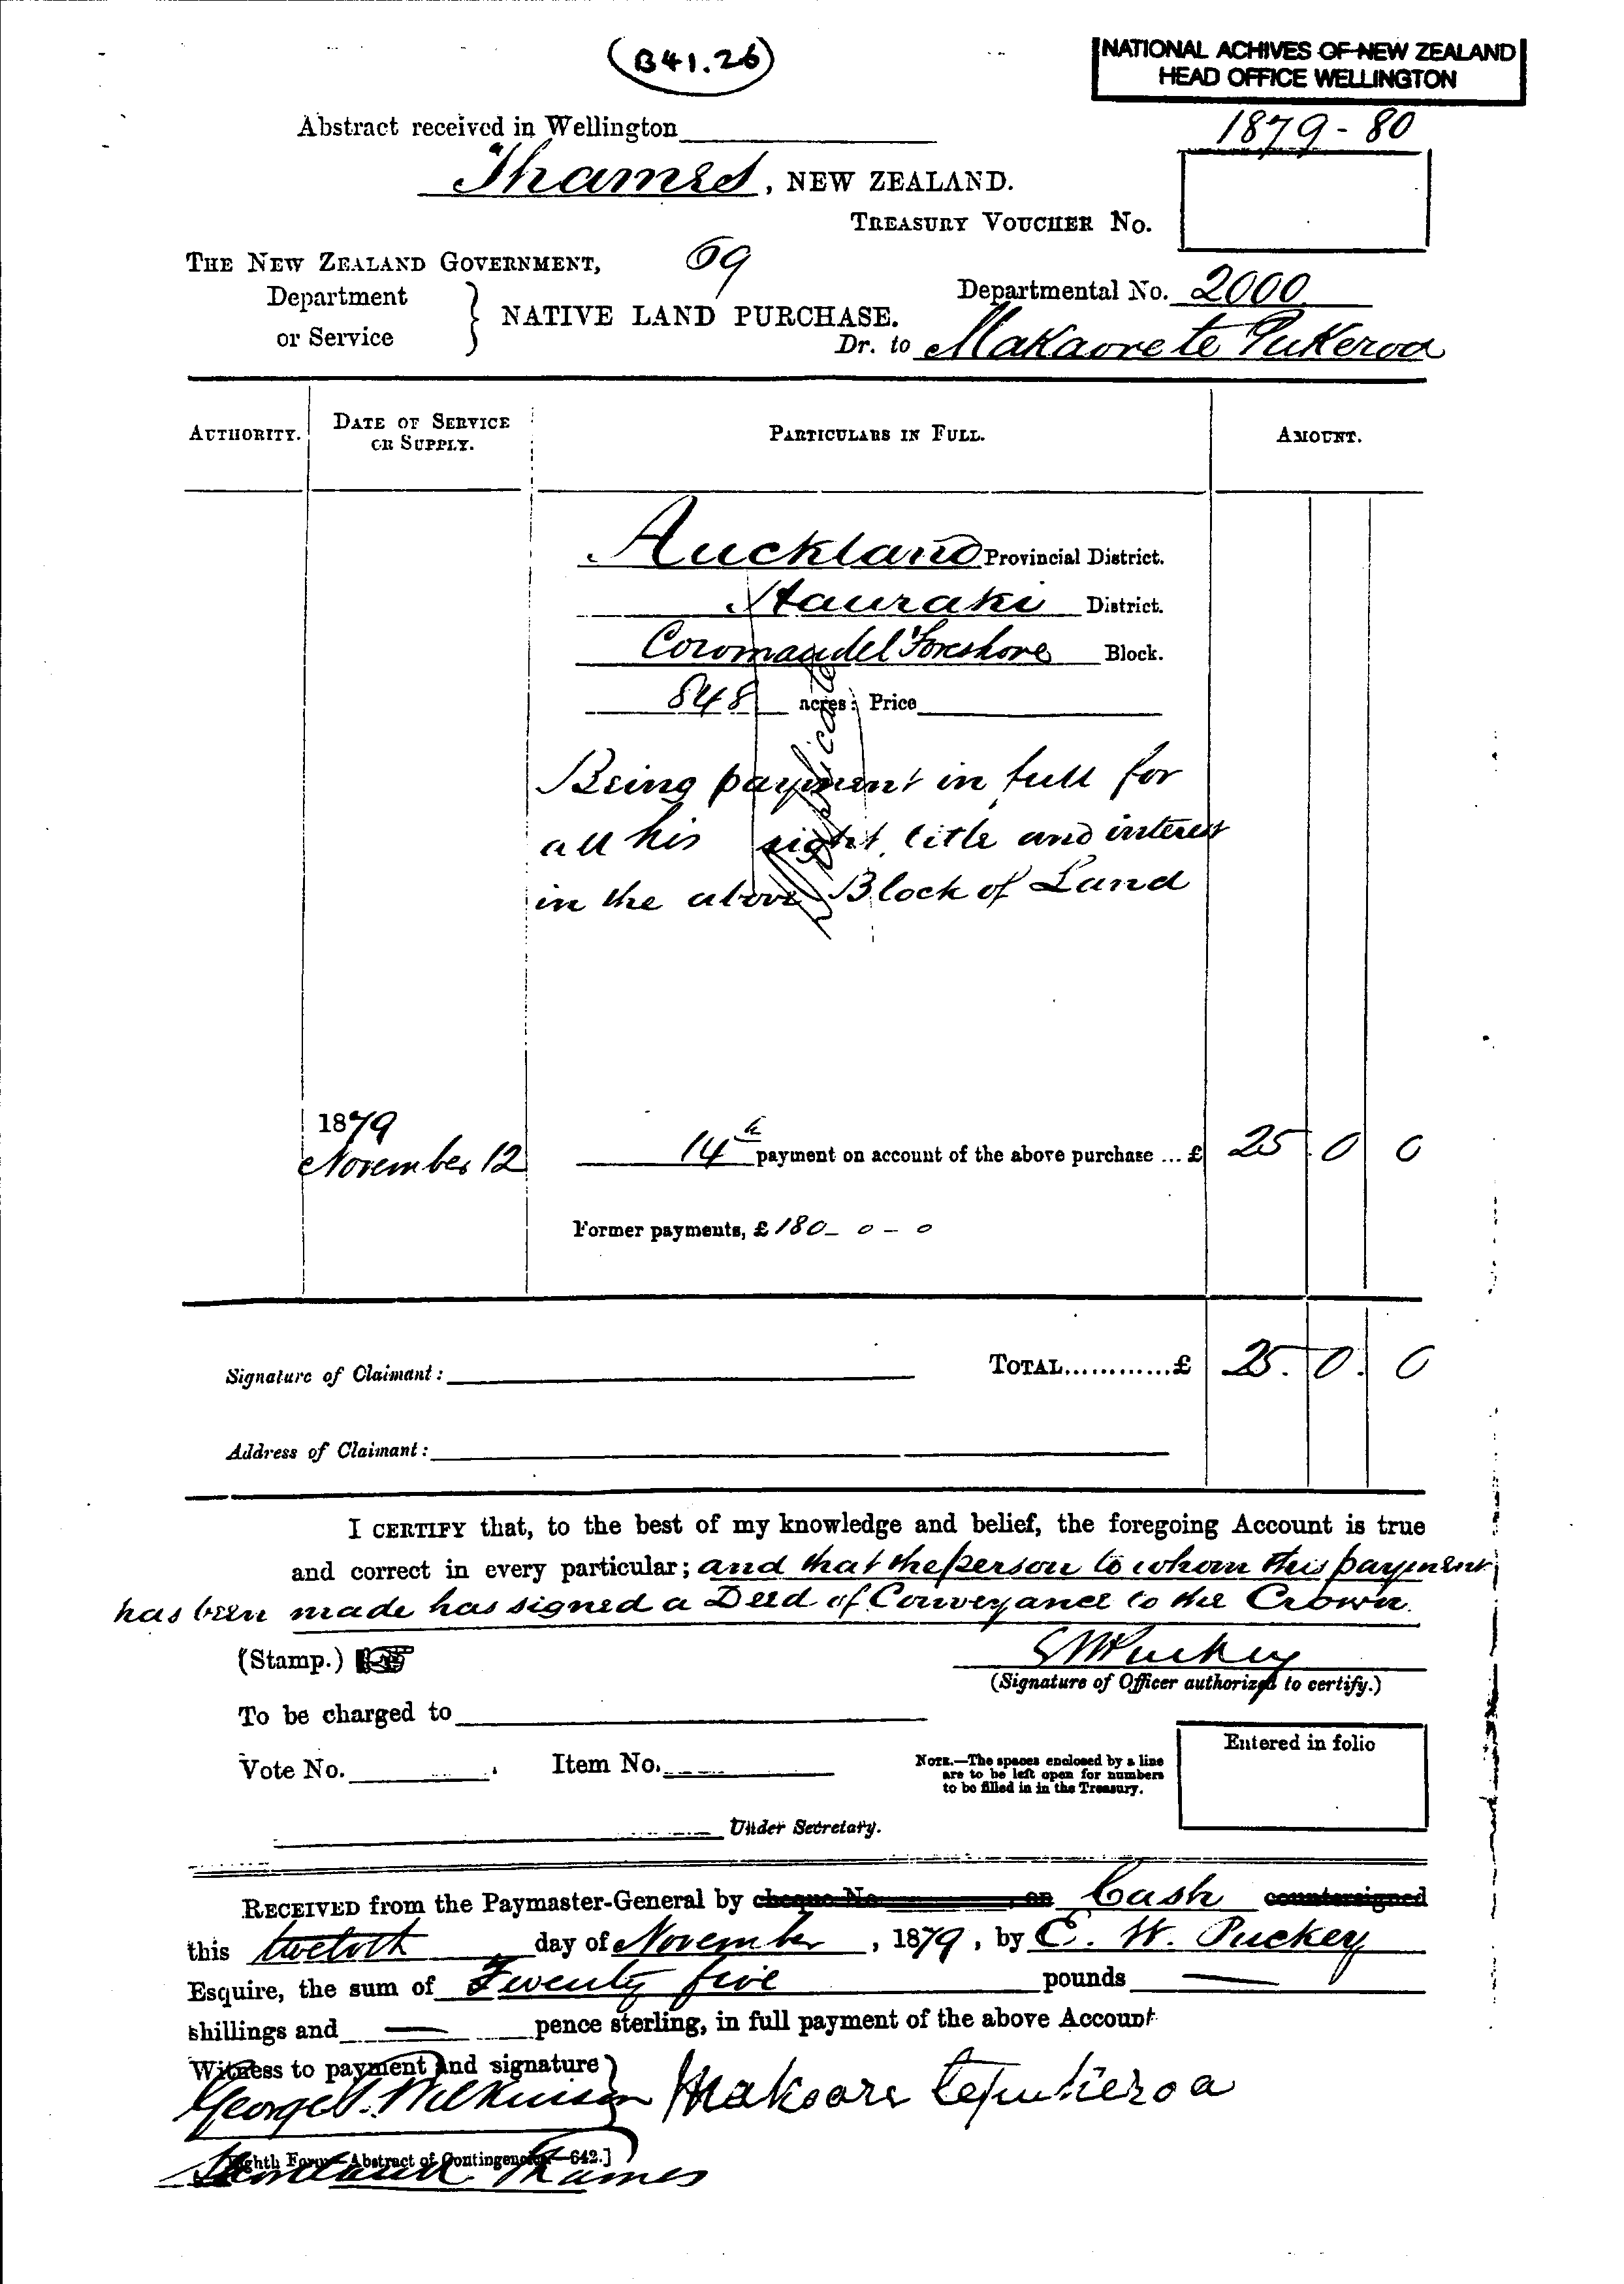 (B41.26)
NATIONAL ACHIVES OF NEW ZEALAND
HEAD OFFICE WELLINGTON
Abstract received in Wellington
1879-80
Thames, NEW ZEALAND.
TREASURY VOUCHER No.
THE NEW ZEALAND GOVERNMENT, 69
Department
or Service } NATIVE LAND PURCHASE.
Departmental No. 2000
Dr. to Makaore te Pukeroa
AUTHORITY. DATE OF SERVICE OR SUPPLY. PARTICULARS IN FULL. AMOUNT.
Auckland Provincial District.
Hauraki District.
Coromandel Foreshore Block.
848 acres: Price
Duplicate
Being payment in full for
all his right, title and interest
in the above Block of Land
1879
November 12 14th payment on account of the above purchase ... £ 25 0 0
Former payments, £ 180 - 0 - 0
Signature of Claimant: TOTAL............£ 25. 0. 0
Address of Claimant:
I CERTIFY that, to the best of my knowledge and belief, the foregoing Account is true
and correct in every particular; and that the person to whom this payment
has been made has signed a Deed of Conveyance to the Crown.
(Stamp.) EWPuckey
(Signature of Officer authorized to certify.)
To be charged to
Vote No. Item No.
NOTE.—The spaces enclosed by a line
are to be left open for numbers
to be filled in in the Treasury.
Entered in folio
Under Secretary.
RECEIVED from the Paymaster-General by cheque No. , on Cash countersigned
this twelvth day of November, 1879, by E. W. Puckey
Esquire, the sum of Twenty five pounds —
shillings and — pence sterling, in full payment of the above Account
Witness to payment and signature }
George T. Wilkinson Makaore te pukeroa
Abstract of Contingencies—642.]
Thames